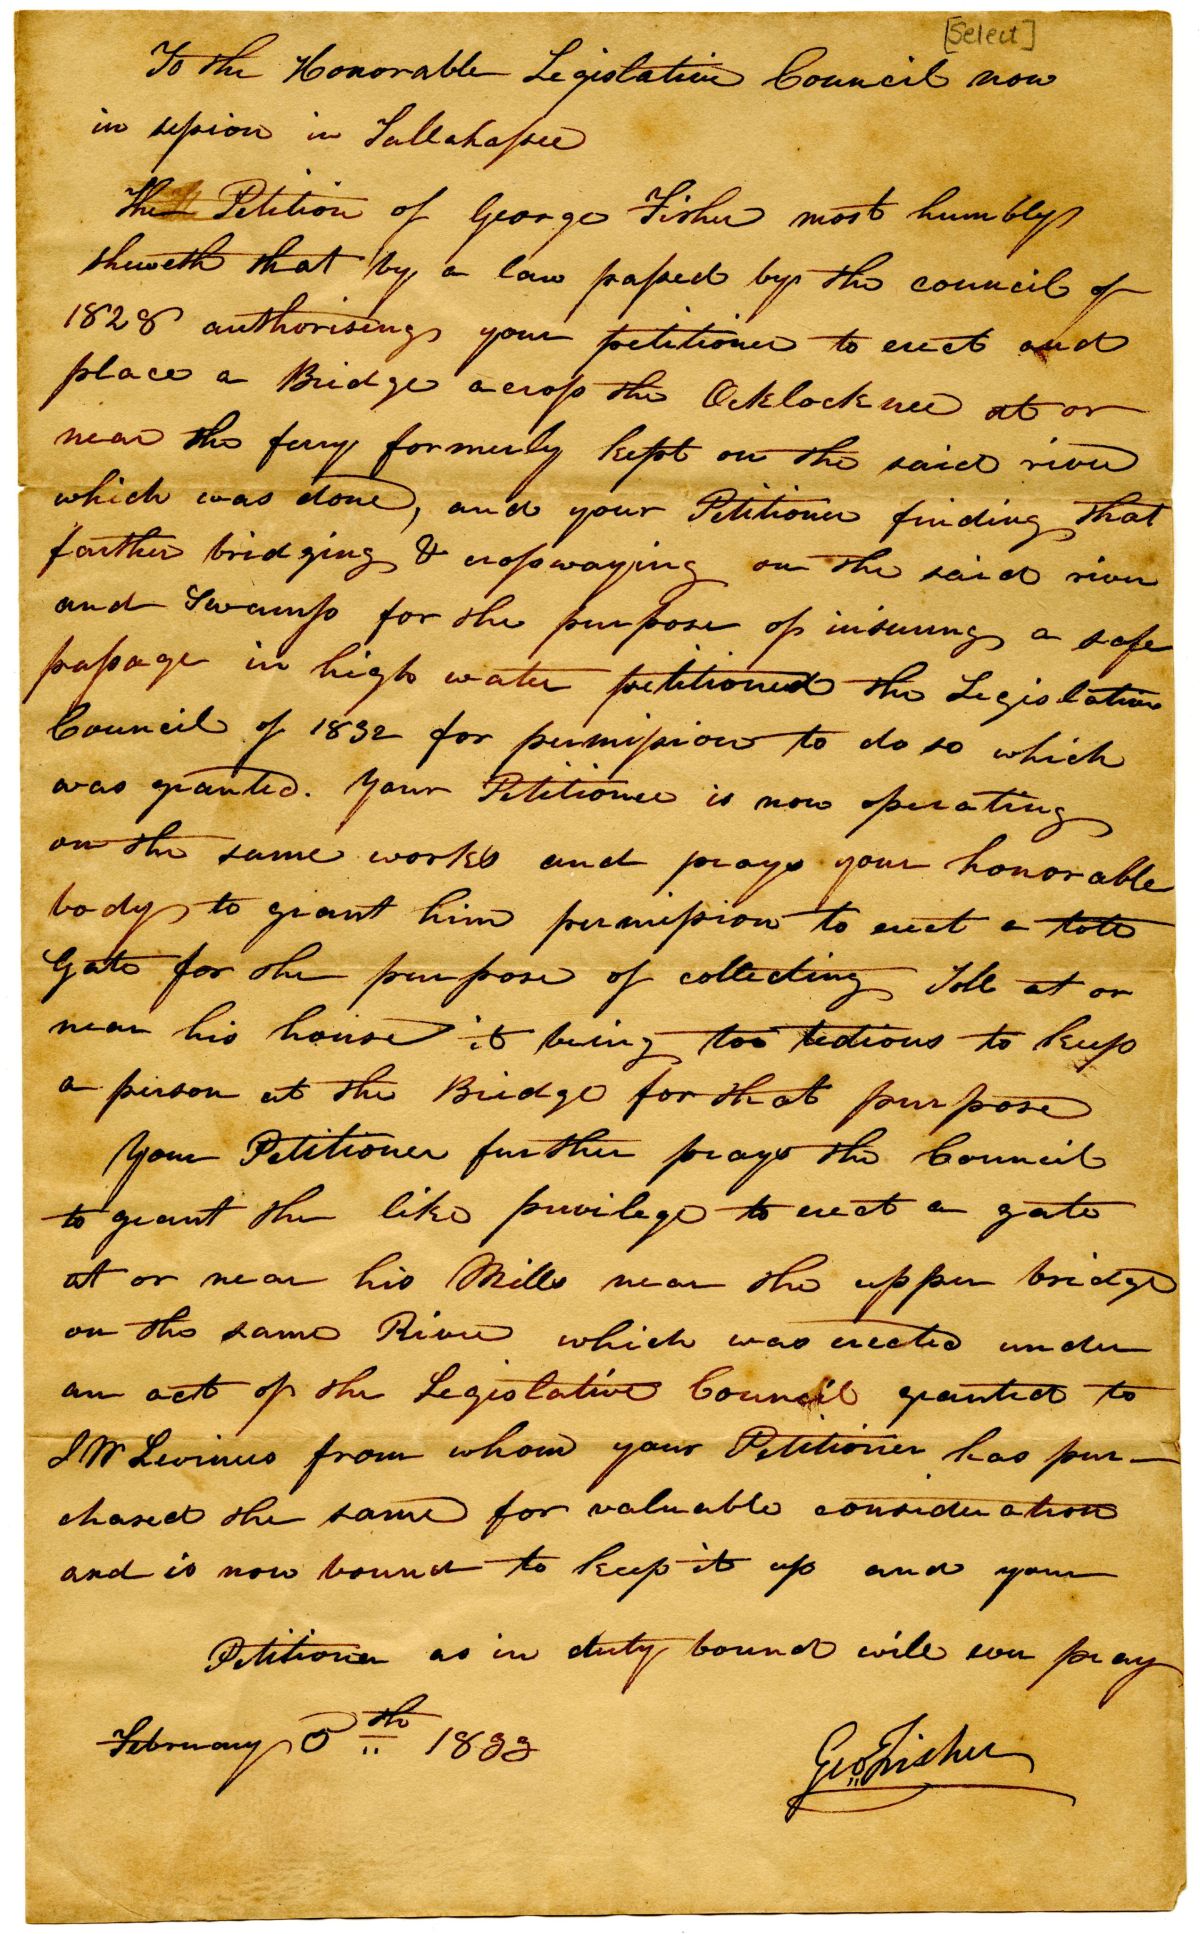 [Select]
To the Honorable Legislative Council now
in session in Tallahassee
The Petition of George Fisher most humbly
sheweth that by a law passed by the council of
1828 authorising your petitioner to erect and
place a Bridge across the Ocklocknee at or
near the ferry formerly kept on the said river
which was done, and your Petitioner finding that
farther bridging & crosswaying on the said river
and Swamp for the purpose of insuring a safe
passage in high water petitioned the Legislative
Council of 1832 for permission to do so which
was granted. Your Petitioner is now operating
on the same works and prays your honorable
body to grant him permission to erect a tole
Gate for the purpose of collecting Toll at or
near his house it being too tedious to keep
a person at the Bridge for that purpose
Your Petitioner further prays the Council
to grant the like privilege to erect a gate
at or near his Mills near the upper bridge
on the same River which was erected under
an act of the Legislative Council granted to
J W Levinus from whom your Petitioner has pur-
chased the same for valuable consideration
and is now bound to keep it up and your
Petitioner as in duty bound will ever pray
February 5th 1833
Geo Fisher